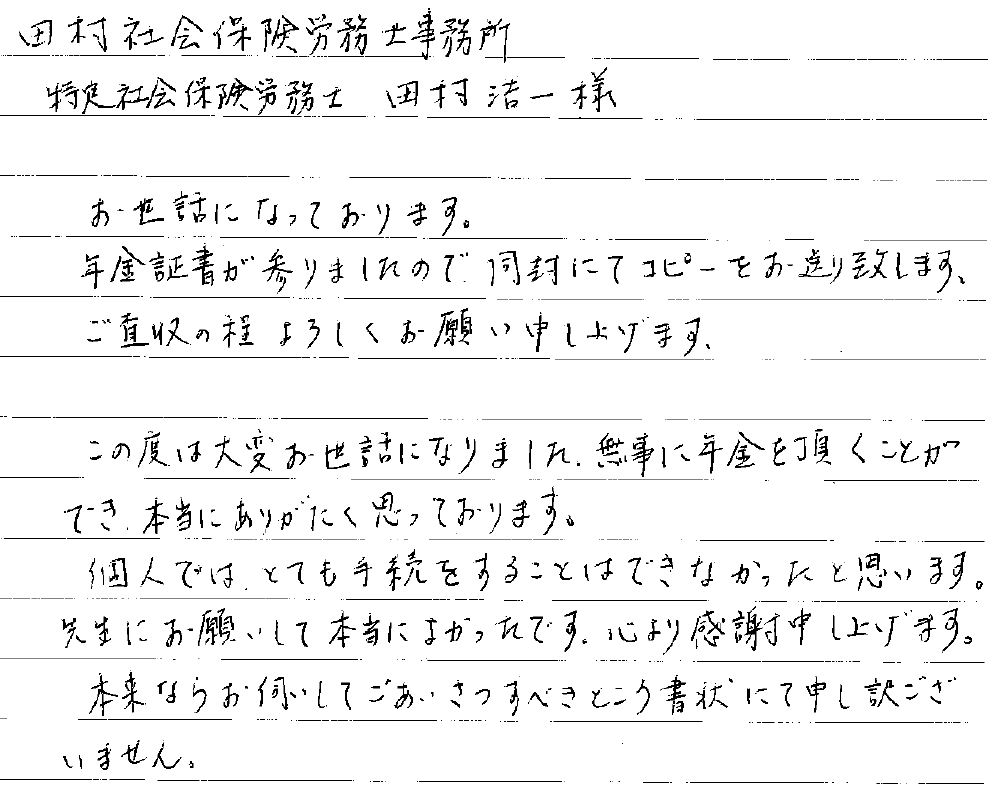 田村社会保険労務士事務所
特定社会保険労務士 田村浩一様
お世話になっております。
年金証書が参りましたので同封にてコピーをお送り致します、
ご査収の程よろしくお願い申し上げます、
この度は大変お世話になりました、無事に年金を頂くことが
でき、本当にありがたく思っております。
個人では、とても手続をすることはできなかったと思います。
先生にお願いして本当によかったです、心より感謝申し上げます。
本来ならお伺いしてごあいさつすべきところ書状にて申し訳ござ
いません。